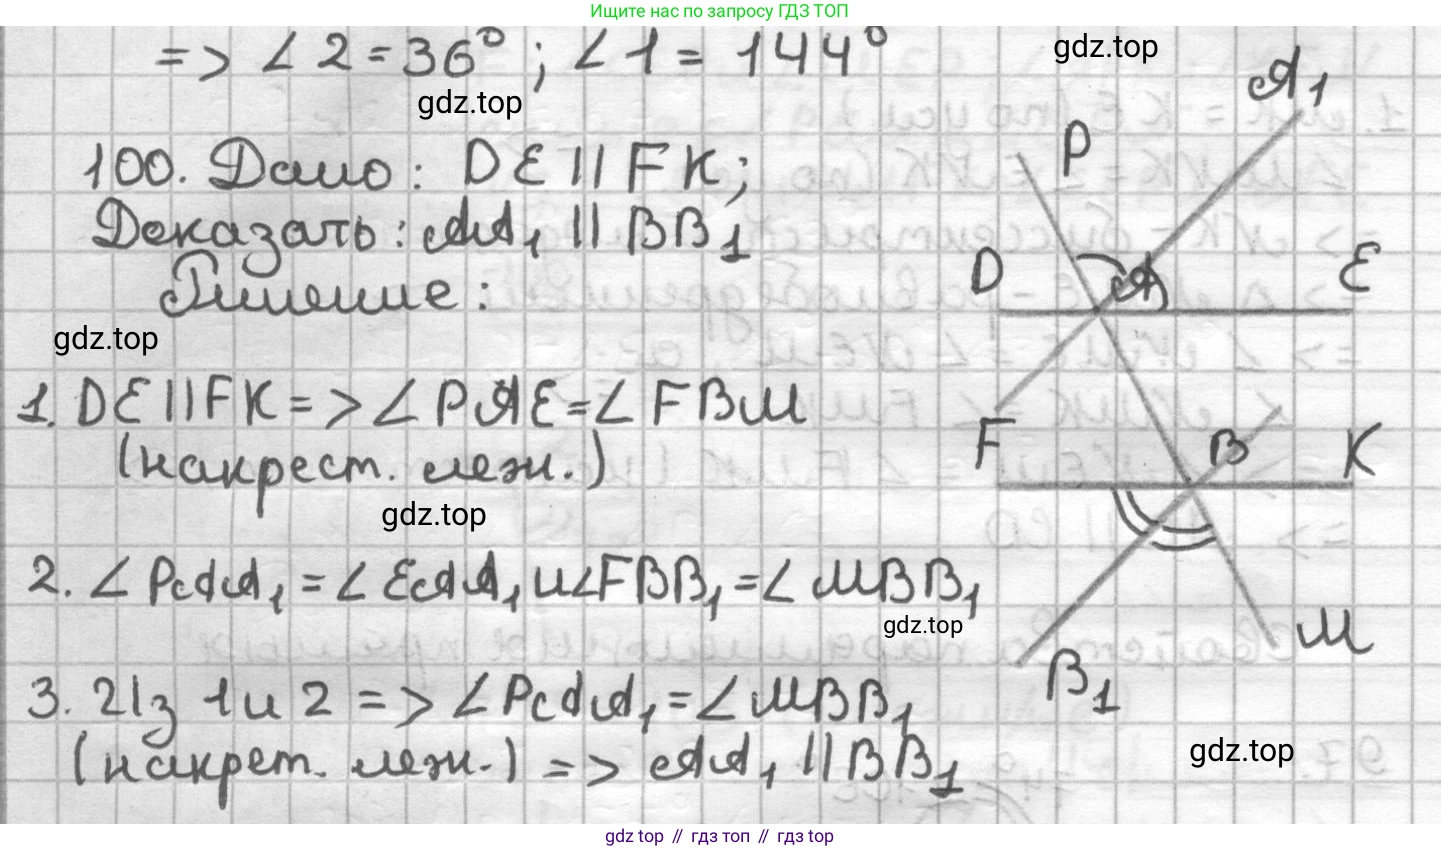 Ищите нас по запросу ГДЗ ТОП
=> ∠2 = 36°; ∠1 = 144°
gdz.top
gdz.top
100. Дано: DE || FK;
Доказать: AA₁ || BB₁
Решение:
gdz.top
1. DE || FK => ∠PAE = ∠FBM
(накрест. леж.)
gdz.top
2. ∠PAA₁ = ∠EAA₁ и ∠FBB₁ = ∠MBB₁
gdz.top
3. Из 1 и 2 => ∠PAA₁ = ∠MBB₁
(накрет. леж.) => AA₁ || BB₁
gdz.top
A₁
P
D
A
E
F
B
K
M
B₁
gdz top // гдз топ // gdz top